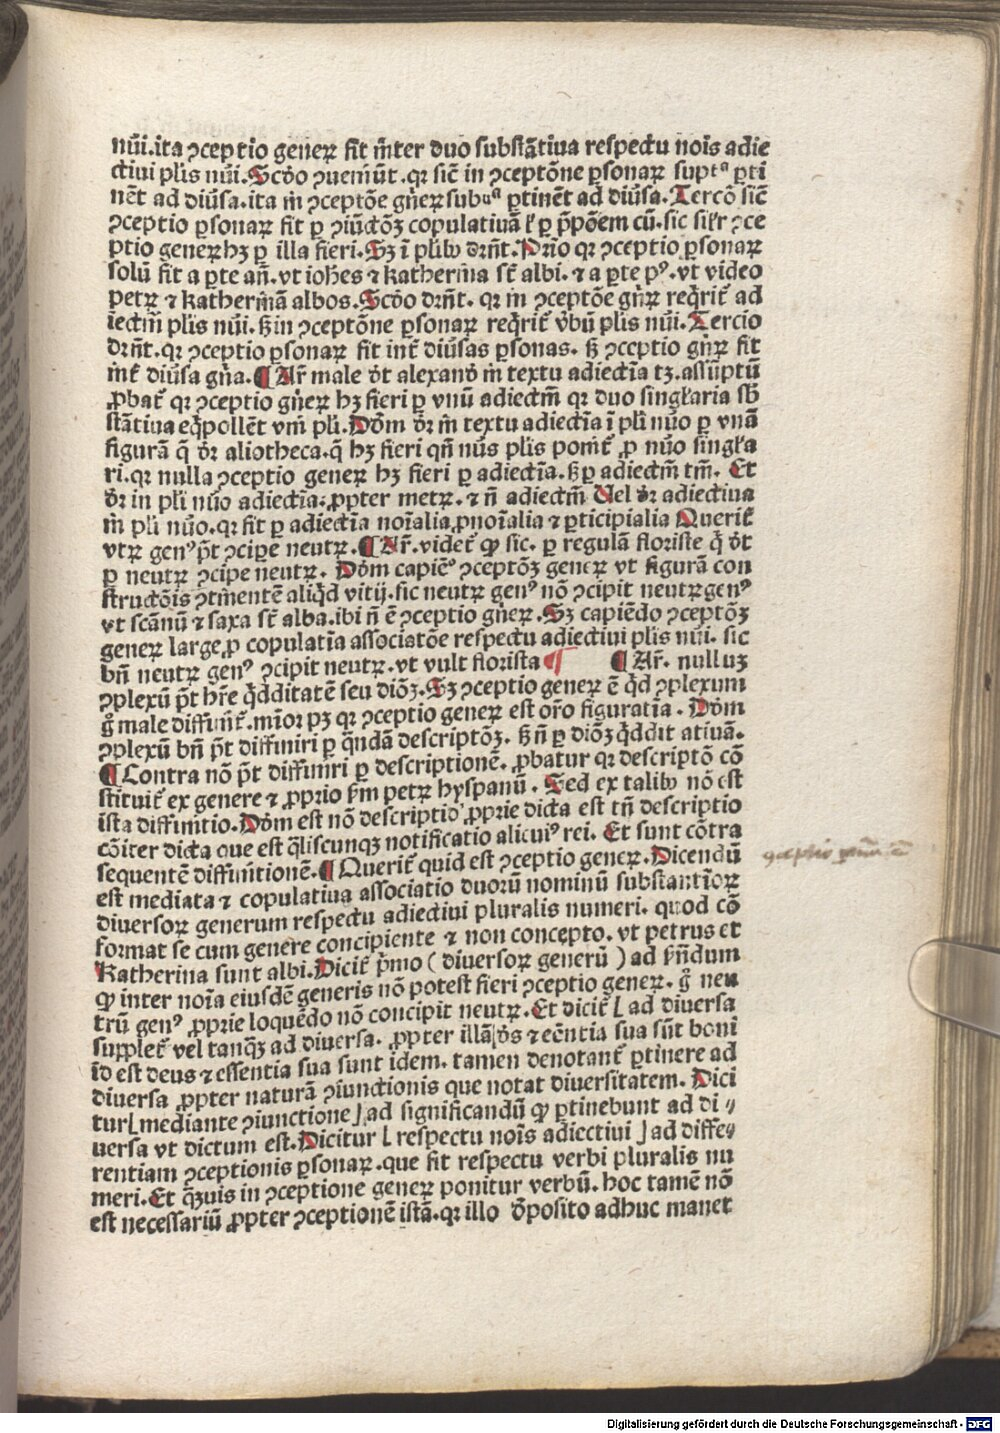 nũi. ita ꝯceptio geneꝝ fit inter duo substãtiua respectu nois adie
ctiui plis nũi. Scďo ꝯueniũt. qꝛ sic̃ in ꝯceptõne ꝑsonaꝝ suptᵃ ꝑti
nẽt ad diũsa. ita in ꝯceptõe gñeꝝ subᵘᵃ ꝑtinẽt ad diũsa. Tercõ sic̃
ꝯceptio ꝑsonaꝝ fit ꝑ ꝯiũctõꝫ copulatiuã ł ꝑ p̃põem cũ. sic silꝛ ꝯce
ptio geneꝝ hꝫ ꝑ illa fieri. Sꝫ ĩ plibꝰ drñt. Prio qꝛ ꝯceptio ꝑsonaꝝ
solũ fit a ꝑte añ. vt ioh̃es ⁊ katherina st̃ albi. ⁊ a ꝑte pꝰ. vt video
petꝝ ⁊ katherinã albos. Scďo drñt. qꝛ in ꝯceptõe gñꝝ reqrit̃ ad
iectiũ plis nũi. ꜩ in ꝯceptõne ꝑsonaꝝ reqrit̃ v̾bũ plis nũi. Tercio
drñt. qꝛ ꝯceptio ꝑsonaꝝ fit int̃ diũsas ꝑsonas. ꜩ ꝯceptio gñꝝ fit
int̃ diũsa gña. ¶ Ar̃ male dt alexand̾ in textu adiectĩa tꝫ. assũptũ
ꝓbat̃ qꝛ ꝯceptio gñeꝝ hꝫ fieri ꝑ vnũ adiectiũ qꝛ duo singłaria sb̾
stãtiua eq̃pollẽt vni pli. Dõm dr̃ in textu adiectĩa ĩ pli nũo ꝑ vnã
figurã q̃ dr̃ aliotheca. q̃ hꝫ fieri qñ nũs plis ponit̃ ꝓ nũo singła
ri. qꝛ nulla ꝯceptio geneꝝ hꝫ fieri ꝑ adiectĩa. ꜩ ꝑ adiectiũ tm̃. Et
dr̃ in pli nũo adiectĩa: ꝓpter metꝝ. ⁊ ñ adiectiũ Uel dr̃ adiectiua
in pli nũo. qꝛ fit ꝑ adiectĩa noĩalia ꝓnoĩalia ⁊ ꝑticipialia Querit̃
vtꝝ genꝰ p̃t ꝯcipe neutꝝ. ¶ Ar̃. videt̃ ꝙ sic. ꝑ regulã floriste q̃ dt
ꝑ neutꝝ ꝯcipe neutꝝ. Dõm capiẽˢ ꝯceptõꝫ geneꝝ vt figurã con
structõis ꝯtinentẽ aliq̃d vitij. sic neutꝝ genꝰ nõ ꝯcipit neutꝝ genꝰ
vt scãnũ ⁊ saxa st̃ alba. ibi ñ ẽ ꝯceptio gñeꝝ. Sꝫ capiẽdo ꝯceptõꝫ
geneꝝ large ꝓ copulatĩa associatõe respectu adiectiui plis nũi. sic
bñ neutꝝ genꝰ ꝯcipit neutꝝ. vt vult florista ¶ ¶ Ar̃. nulluꝫ
ꝯplexũ p̃t hr̃e q̃dditatẽ seu diõꝫ. Sꝫ ꝯceptio geneꝝ ẽ q̃d ꝯplexum
g̃ male diffinit̃. minor pꝫ qꝛ ꝯceptio geneꝝ est or̃o figuratĩa. Dõm
ꝯplexũ bñ p̃t diffiniri ꝑ q̃ndã descriptõꝫ. ꜩ ñ ꝑ diõꝫ q̃ddit atiuã.
¶ Contra nõ p̃t diffiniri ꝑ descriptionẽ. ꝓbatur qꝛ descriptõ cõ
stituit̃ ex genere ⁊ ꝓprio ẜm petꝝ hyspanũ. Sed ex talibꝰ nõ est
ista diffinitio. Dõm est nõ descriptio ꝓprie dicta est tñ descriptio
cõiter dicta que est q̃liscunqꝫ notificatio alicuiꝰ rei. Et sunt cõtra
sequentẽ diffinitionẽ. ¶ Querit̃ quid est ꝯceptio geneꝝ. Dicendũ
est mediata ⁊ copulatiua associatio duorũ nominũ substantĩoꝝ
diuersoꝝ generum respectu adiectiui pluralis numeri. quod cõ
format se cum genere concipiente ⁊ non concepto. vt petrus et
Katherina sunt albi. Dicit̃ p̃mo ( diuersoꝝ generũ ) ad ẜñdum
ꝙ inter noĩa eiusdẽ generis nõ potest fieri ꝯceptio geneꝝ. g̃ neu
trũ genꝰ ꝓprie loquẽdo nõ concipit neutꝝ. Et dicit̃ [ ad diuersa
supplet̃ vel tanqꝫ̃ ad diuersa. ꝓpter illã[ ds̃ ⁊ eẽntia sua sũt boni
id est deus ⁊ essentia sua sunt idem. tamen denotant̃ ꝑtinere ad
diuersa ꝓpter naturã ꝯiunctionis que notat diuersitatem. Dici
tur[ mediante ꝯiunctione ] ad significandũ ꝙ ꝑtinebunt ad di⸗
uersa vt dictum est. Dicitur [ respectu nois adiectiui ] ad diffe⸗
rentiam ꝯceptionis ꝑsonaꝝ. que fit respectu verbi pluralis nu
meri. Et qꝫ̃uis in ꝯceptione geneꝝ ponitur verbũ. hoc tamẽ nõ
est necessariũ ꝓpter ꝯceptionẽ istã. qꝛ illo d̾posito adhuc manet
Digitalisierung gefördert durch die Deutsche Forschungsgemeinschaft - DFG